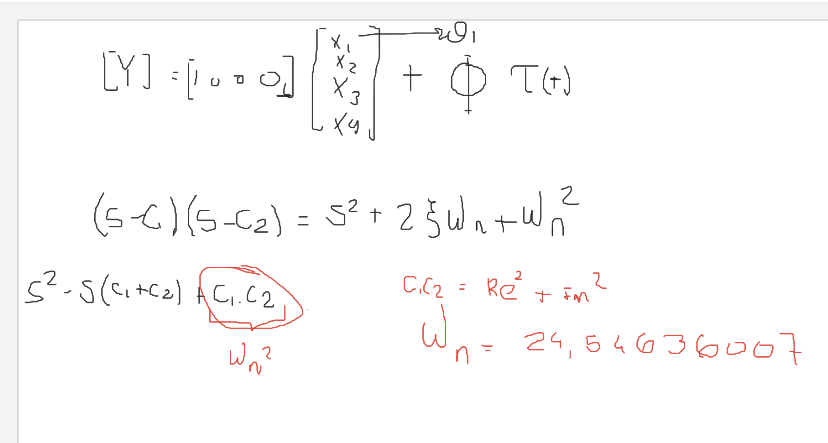 [Y] = [1 0 0 0] [x₁ x₂ x₃ x₄] + ϕ T(t)
→ θ₁
(S-C)(S-C₂) = S² + 2ξWn + Wn²
S² - S(C₁+C₂) + C₁.C₂
C₁C₂ = Re² + Im²
Wn²
Wn = 24,54636007